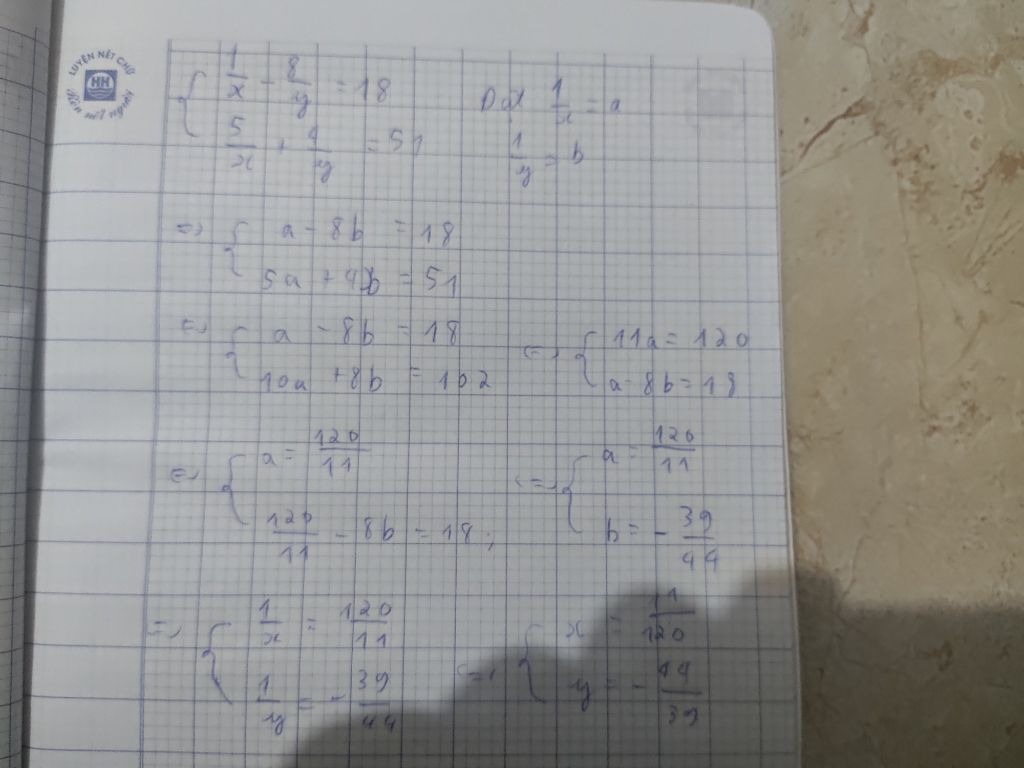 LUYỆN NÉT CHỮ
HN
Rèn nết người
{ 1/x - 8/y = 18
5/x + 4/y = 51
Đặt 1/x = a
1/y = b
=> { a - 8b = 18
5a + 4b = 51
<=> { a - 8b = 18
10a + 8b = 102
<=> { 11a = 120
a - 8b = 18
<=> { a = 120/11
120/11 - 8b = 18
<=> { a = 120/11
b = - 39/44
=> { 1/x = 120/11
1/y = - 39/44
<=> { x = 11/120
y = - 44/39